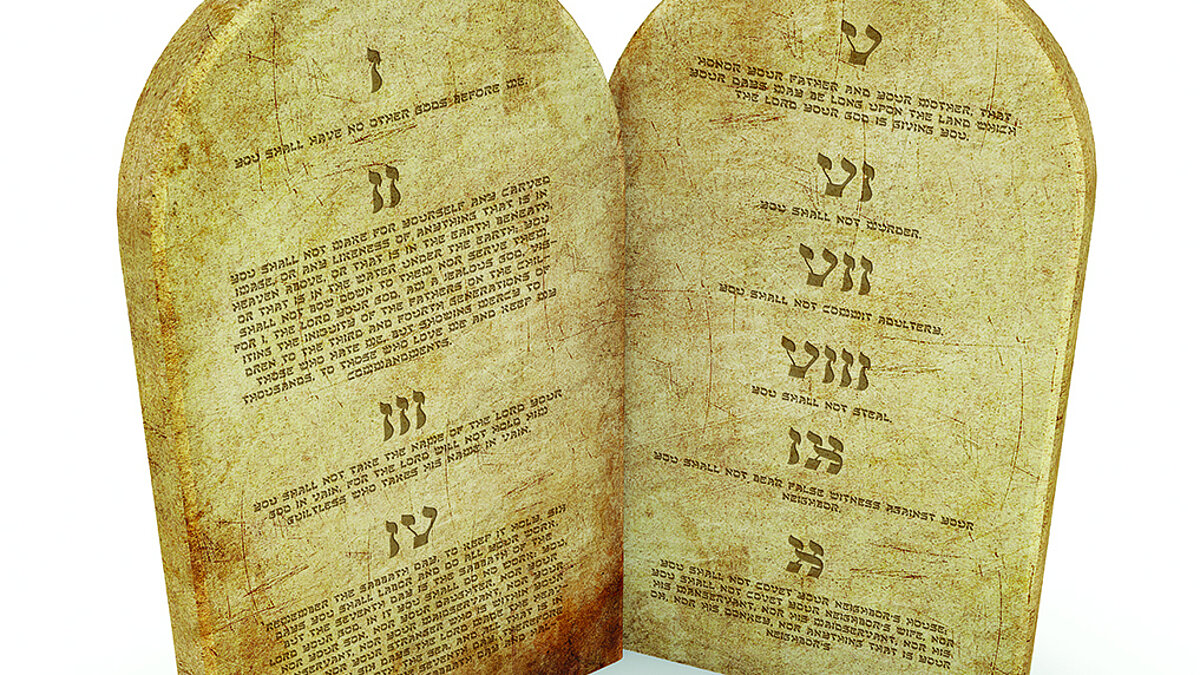 I
YOU SHALL HAVE NO OTHER GODS BEFORE ME.
II
YOU SHALL NOT MAKE FOR YOURSELF ANY CARVED
IMAGE, OR ANY LIKENESS OF ANYTHING THAT IS IN
HEAVEN ABOVE, OR THAT IS IN THE EARTH BENEATH,
OR THAT IS IN THE WATER UNDER THE EARTH; YOU
SHALL NOT BOW DOWN TO THEM NOR SERVE THEM.
FOR I, THE LORD YOUR GOD, AM A JEALOUS GOD, VIS-
ITING THE INIQUITY OF THE FATHERS ON THE CHIL-
DREN TO THE THIRD AND FOURTH GENERATIONS OF
THOSE WHO HAVE ME, BUT SHOWING MERCY TO
THOUSANDS, TO THOSE WHO LOVE ME AND KEEP MY
COMMANDMENTS.
III
YOU SHALL NOT TAKE THE NAME OF THE LORD YOUR
GOD IN VAIN, FOR THE LORD WILL NOT HOLD HIM
GUILTLESS WHO TAKES HIS NAME IN VAIN.
IV
REMEMBER THE SABBATH DAY, TO KEEP IT HOLY. SIX
DAYS YOU SHALL LABOR AND DO ALL YOUR WORK,
BUT THE SEVENTH DAY IS THE SABBATH OF THE
LORD YOUR GOD. IN IT YOU SHALL DO NO WORK: YOU,
NOR YOUR SON, NOR YOUR DAUGHTER, NOR YOUR
NOR YOUR MAIDSERVANT, NOR YOUR
NOR YOUR STRANGER WHO IS WITHIN YOUR
SIX DAYS THE LORD MADE THE
THE SEA, AND ALL THAT IS IN
SEVENTH DAY.
SABBATH DAY AND
V
HONOR YOUR FATHER AND YOUR MOTHER, THAT
YOUR DAYS MAY BE LONG UPON THE LAND WHICH
THE LORD YOUR GOD IS GIVING YOU.
VI
YOU SHALL NOT MURDER.
VII
YOU SHALL NOT COMMIT ADULTERY.
VIII
YOU SHALL NOT STEAL
IX
YOU SHALL NOT BEAR FALSE WITNESS AGAINST YOUR
NEIGHBOR.
X
YOU SHALL NOT COVET YOUR NEIGHBOR'S HOUSE
YOU SHALL NOT COVET YOUR NEIGHBOR'S WIFE, NOR
HIS MANSERVANT, NOR HIS MAIDSERVANT, NOR HIS
OX, NOR HIS DONKEY, NOR ANYTHING THAT IS YOUR
NEIGHBOR'S